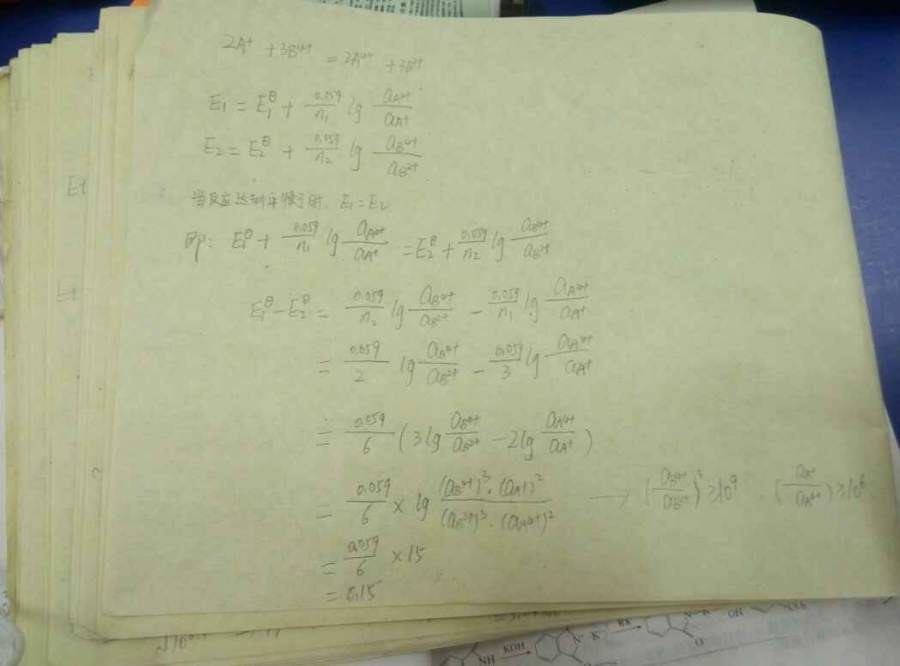 2A⁺ + 3B⁴⁺ = 2A⁴⁺ + 3B²⁺
E₁ = E₁^θ + 0.059/n₁ lg a_A⁴⁺/a_A⁺
E₂ = E₂^θ + 0.059/n₂ lg a_B⁴⁺/a_B²⁺
当反应达到平衡时, E₁ = E₂
即: E₁^θ + 0.059/n₁ lg a_A⁴⁺/a_A⁺ = E₂^θ + 0.059/n₂ lg a_B⁴⁺/a_B²⁺
E₁^θ - E₂^θ = 0.059/n₂ lg a_B⁴⁺/a_B²⁺ - 0.059/n₁ lg a_A⁴⁺/a_A⁺
= 0.059/2 lg a_B⁴⁺/a_B²⁺ - 0.059/3 lg a_A⁴⁺/a_A⁺
= 0.059/6 (3lg a_B⁴⁺/a_B²⁺ - 2lg a_A⁴⁺/a_A⁺)
= 0.059/6 × lg (a_B⁴⁺)³·(a_A⁺)²/(a_B²⁺)³·(a_A⁴⁺)² → (a_B⁴⁺/a_B²⁺)³ ≥ 10⁹ · (a_A⁺/a_A⁴⁺) ≥ 10⁶
= 0.059/6 × 15
= 0.15
NH KOH N⁻ K⁺ RX